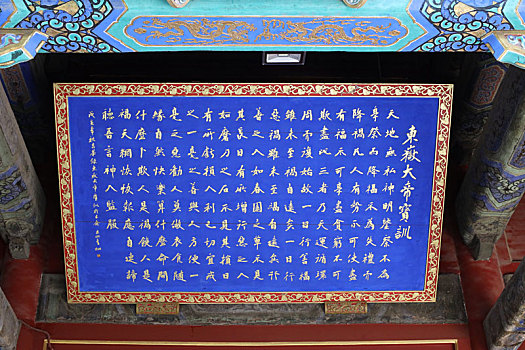 東嶽大帝寶訓
天地無私神明鑒察不為
享祭而降福不為失禮而
降禍凡人有勢不可使盡
有福不可享盡貧窮不可
欺盡此三者乃天運循環
周而復始故一日行善福
雖未至禍自遠矣一日行
惡禍雖未至福自遠矣行
善之人如春園之草不見
其長日有所增行惡之人
如磨刀之石不見其損日
有所虧損人利己切宜戒
之一毫之善與人方便一
毫之惡勸人莫作衣食隨
緣自然快樂算什麼命問
什麼卜欺人是禍饒人是
福天網恢恢報應自速諦
聽吾言神人監服